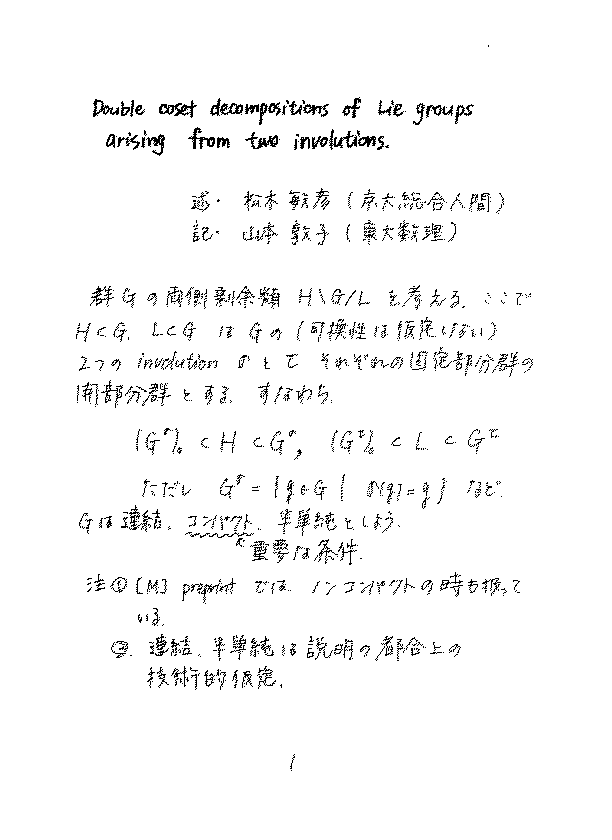 Double coset decompositions of Lie groups
arising from two involutions.
述・ 松木 敏彦 (京大総合人間)
記・ 山本 敦子 (東大数理)
群 G の両側剰余類 H\G/L を考える. ここで
H<G, L<G は G の (可換性は仮定しない)
2つの involution σ と τ それぞれの固定部分群の
開部分群とする. すなわち,
(G^σ)₀ < H < G^σ, (G^τ)₀ < L < G^τ
ただし G^σ = {g∈G | σ(g)=g} など.
Gは連結, コンパクト, 半単純としよう.
重要な条件.
注① [M] preprint では ノンコンパクトの時も扱って
いる.
②. 連結, 半単純は説明の都合上の
技術的仮定.
1